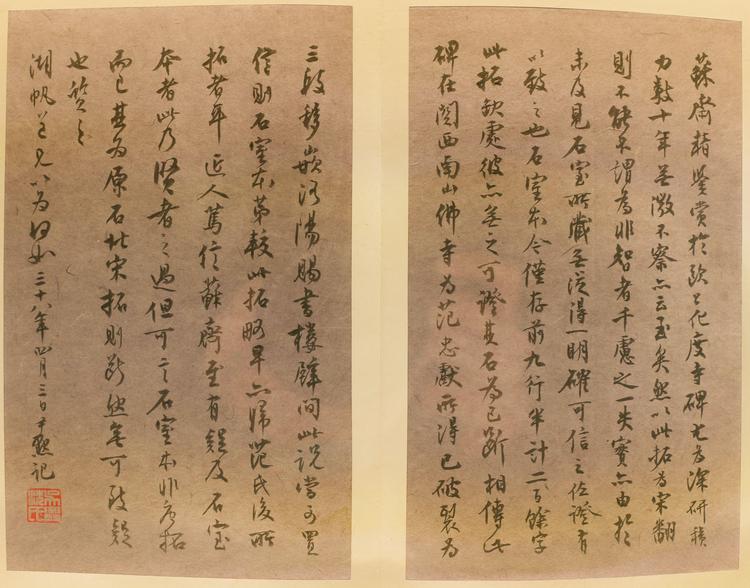 蘇齋精鑒賞於歐公化度寺碑尤為深研積
力數十年無微不察亦云至矣然以此拓為宋翻
則不能不謂為非智者千慮之一失實亦由於
未及見石室所藏無從得一明確可信之佐證有
以致之也石室本今僅存前九行半計二百餘字
此拓缺處彼亦無之可證其石為已斷相傳此
碑在關西南山佛寺為范忠獻所得已破裂為
三段移嵌洛陽賜書樓壁間此說當可置
信則石室本第較此拓略早亦归范氏後所
拓者耳近人篤信蘇齋至有疑及石室
本者此乃賢者之過但可言石室本非唐拓
而已其為原石北宋拓則斷然無可致疑
也質之
湖帆道兄以為何如三十八年四月三日尹默記